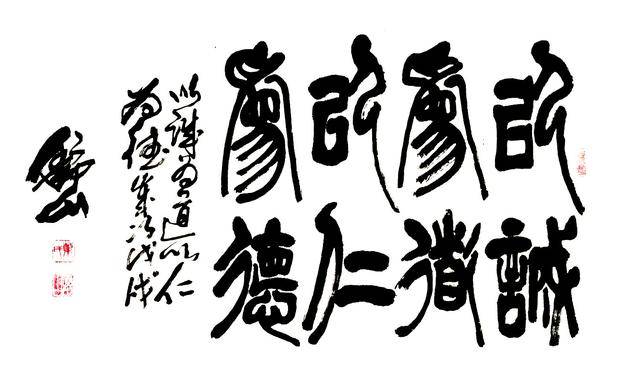 以誠
為道
以仁
為德
以誠為道以仁
為德歲次戊戌